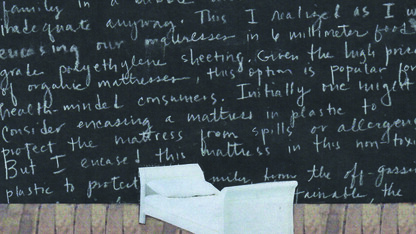 family in a bubble
inadequate anyway. This I realized as I w
encasing our mattresses in 6 millimeter food
grade polyethylene sheeting. Given the high price
of organic mattresses, this option is popular for
health-minded consumers. Initially one might
consider encasing a mattress in plastic to
protect the mattress from spills or allergens
But I encased this mattress in this non-toxi
plastic to protect from the off-gassi
the